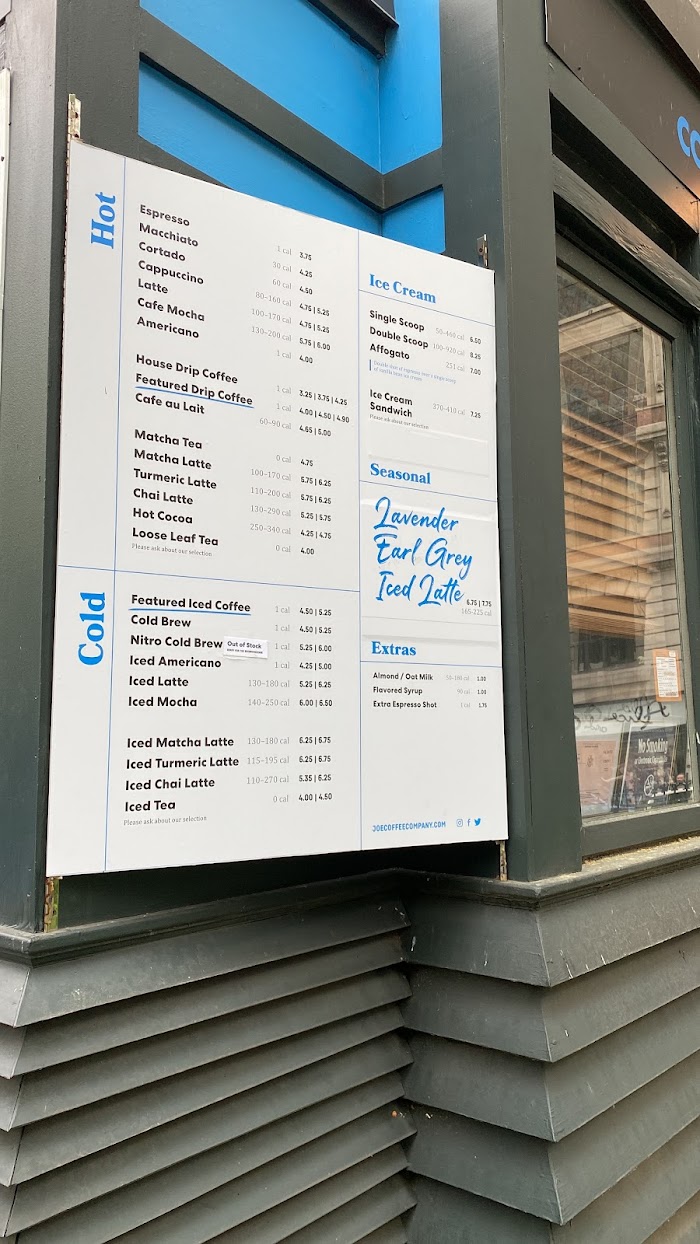 Hot
Espresso 1 cal 3.75
Macchiato 30 cal 4.25
Cortado 60 cal 4.50
Cappuccino 80–160 cal 4.75 | 5.25
Latte 100–170 cal 4.75 | 5.25
Cafe Mocha 130–200 cal 5.75 | 6.00
Americano 1 cal 4.00
House Drip Coffee 1 cal 3.25 | 3.75 | 4.25
Featured Drip Coffee 1 cal 4.00 | 4.50 | 4.90
Cafe au Lait 60–90 cal 4.65 | 5.00
Matcha Tea 0 cal 4.75
Matcha Latte 100–170 cal 5.75 | 6.25
Turmeric Latte 110–200 cal 5.75 | 6.25
Chai Latte 130–290 cal 5.25 | 5.75
Hot Cocoa 250–340 cal 4.25 | 4.75
Loose Leaf Tea 0 cal 4.00
Please ask about our selection
Cold
Featured Iced Coffee 1 cal 4.50 | 5.25
Cold Brew 1 cal 4.50 | 5.25
Nitro Cold Brew Out of Stock 1 cal 5.25 | 6.00
Iced Americano 1 cal 4.25 | 5.00
Iced Latte 130–180 cal 5.25 | 6.25
Iced Mocha 140–250 cal 6.00 | 6.50
Iced Matcha Latte 130–180 cal 6.25 | 6.75
Iced Turmeric Latte 115–195 cal 6.25 | 6.75
Iced Chai Latte 110–270 cal 5.35 | 6.25
Iced Tea 0 cal 4.00 | 4.50
Please ask about our selection
Ice Cream
Single Scoop 50–460 cal 6.50
Double Scoop 100–920 cal 8.25
Affogato 251 cal 7.00
Double shot of espresso over a single scoop
of vanilla bean ice cream
Ice Cream
Sandwich 370–410 cal 7.25
Please ask about our selection
Seasonal
Lavender
Earl Grey
Iced Latte 6.75 | 7.75
165-225 cal
Extras
Almond / Oat Milk 50–100 cal 1.00
Flavored Syrup 90 cal 1.00
Extra Espresso Shot 1 cal 1.75
JOECOFFEECOMPANY.COM
No Smoking